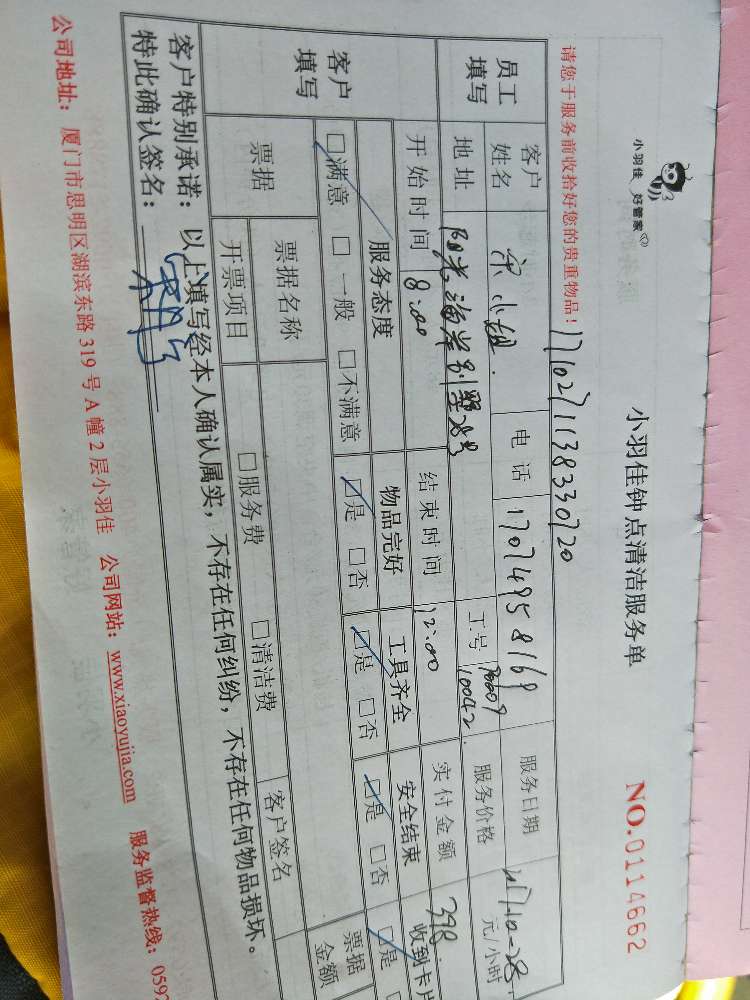 小羽佳 好管家
小羽佳钟点清洁服务单
NO.0114662
1710271138330720
请您于服务前收拾好您的贵重物品!
员工填写 客户姓名 宋小姐 电话 17074958169 服务日期
地址 阳光海岸别墅28号 工号 10042 服务价格 元/小时
开始时间 8:00 结束时间 12:00 实付金额 398
客户填写 服务态度 物品完好 工具齐全 安全结束 收到卡片
☑满意 □一般 □不满意 ☑是 □否 ☑是 □否 ☑是 □否 ☑是
票据 票据名称 □服务费 □清洁费 客户签名 票据金额
开票项目
客户特别承诺：以上填写经本人确认属实，不存在任何纠纷，不存在任何物品损坏。
特此确认签名：
公司地址：厦门市思明区湖滨东路319号A幢2层小羽佳 公司网站：www.xiaoyujia.com 服务监督热线：0592